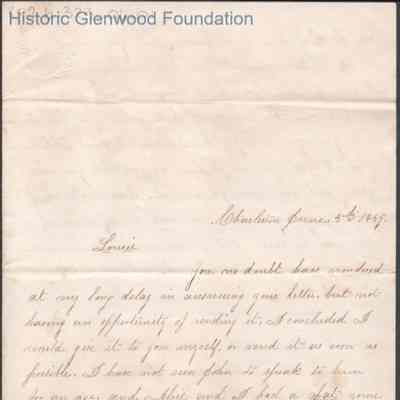 Historic Glenwood Foundation
Charleston June 5th 1859.
Louise
You no doubt have wondered
at my long delay in answering your letter, but not
having an opportunity of sending it, I concluded I
would give it to you myself, or send it as soon as
possible. I have not seen John to speak to him
for an age and I had a chat some